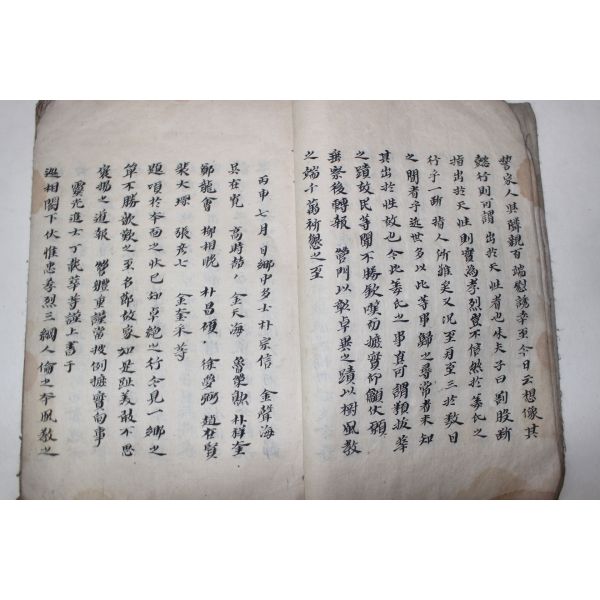 誓家人與隣親百端慰誘幸至今日云想像其
懿行則可謂出於天性者也朱夫子曰割股斷
指出於天性則實為孝烈豈不偉然於姜氏之
行乎一斷指人所難矣又况至再至三於數日
之間者乎近世多以此等事歸之尋常者未知
其出於性故也今此姜氏之事真可謂類拔萃
之蹟故民等聞不勝歎嘆勿摭實仰籲伏願
垂察後轉報 營門以彰卓異之蹟以樹風教
之端千萬祈懇之至
丙申七月日鄉中多士朴宗信 金聲海
吳在寬 高時 金天海 魯 朴祥全
鄭龍會 柳相晚 朴昌碩 徐 弼 趙在賢
張彥七 金奎采 等
題項於本面之狀已知卓絶之行今見一鄉之
單不勝歎歎之至名鄉故家如是趾美敢不思
褒揚之道報 營體重謹當按例摭實向事
靈光進士丁載華等謹上書于
巡相閤下伏惟忠孝烈三綱人倫之本風教之